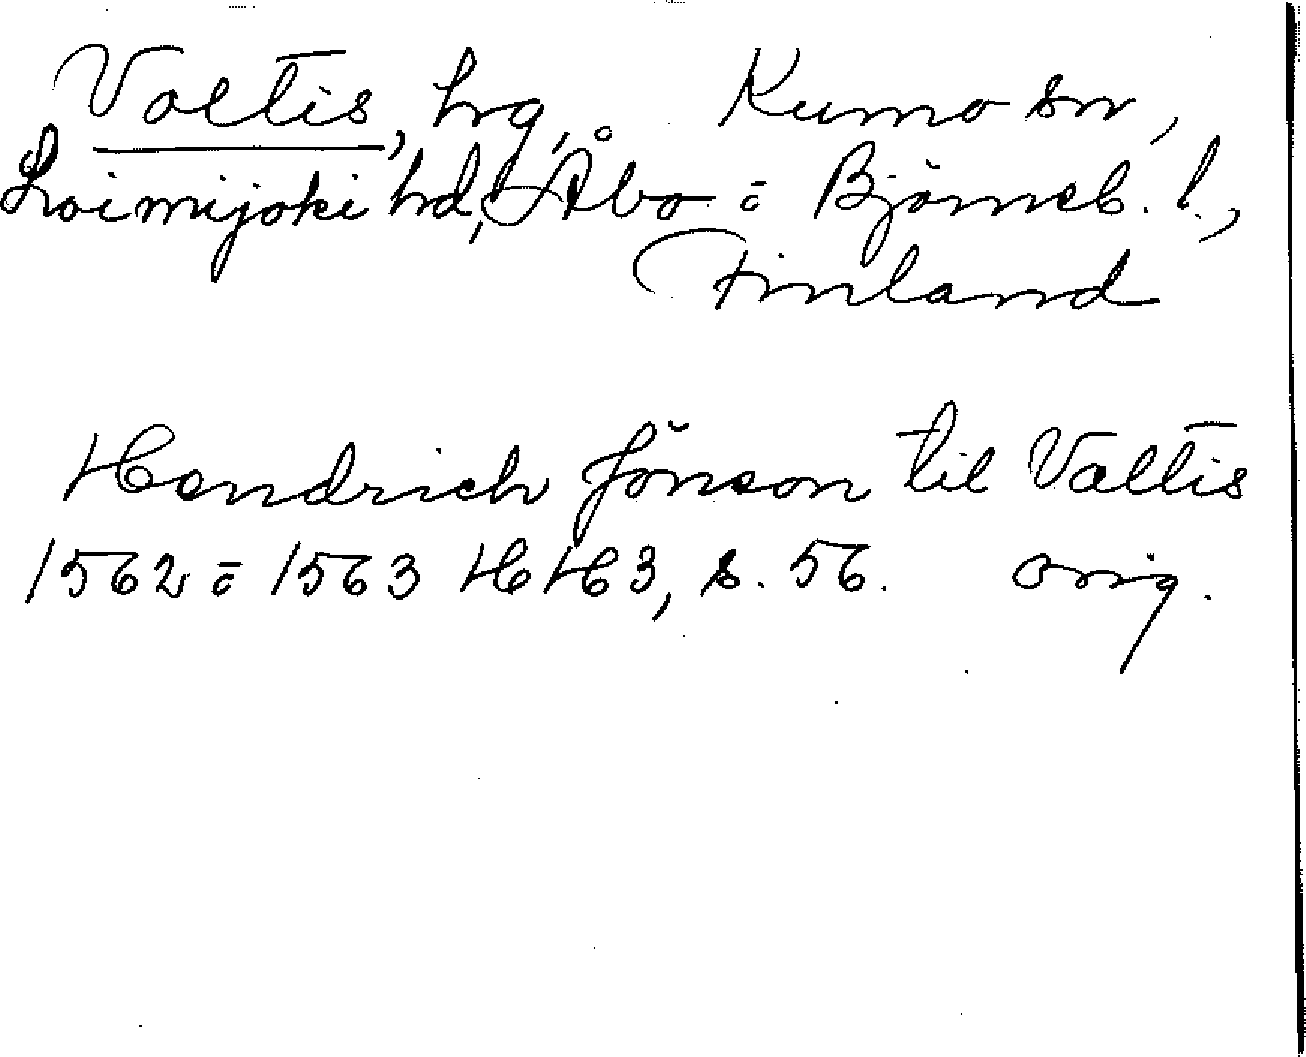 Voltis, hrg, Kumo sn,
Loimijoki hd, Åbo o Björneb. l.,
Finland
Hendrich Jönson til Valtis
1562 o 1563 HH3, s. 56. orig.